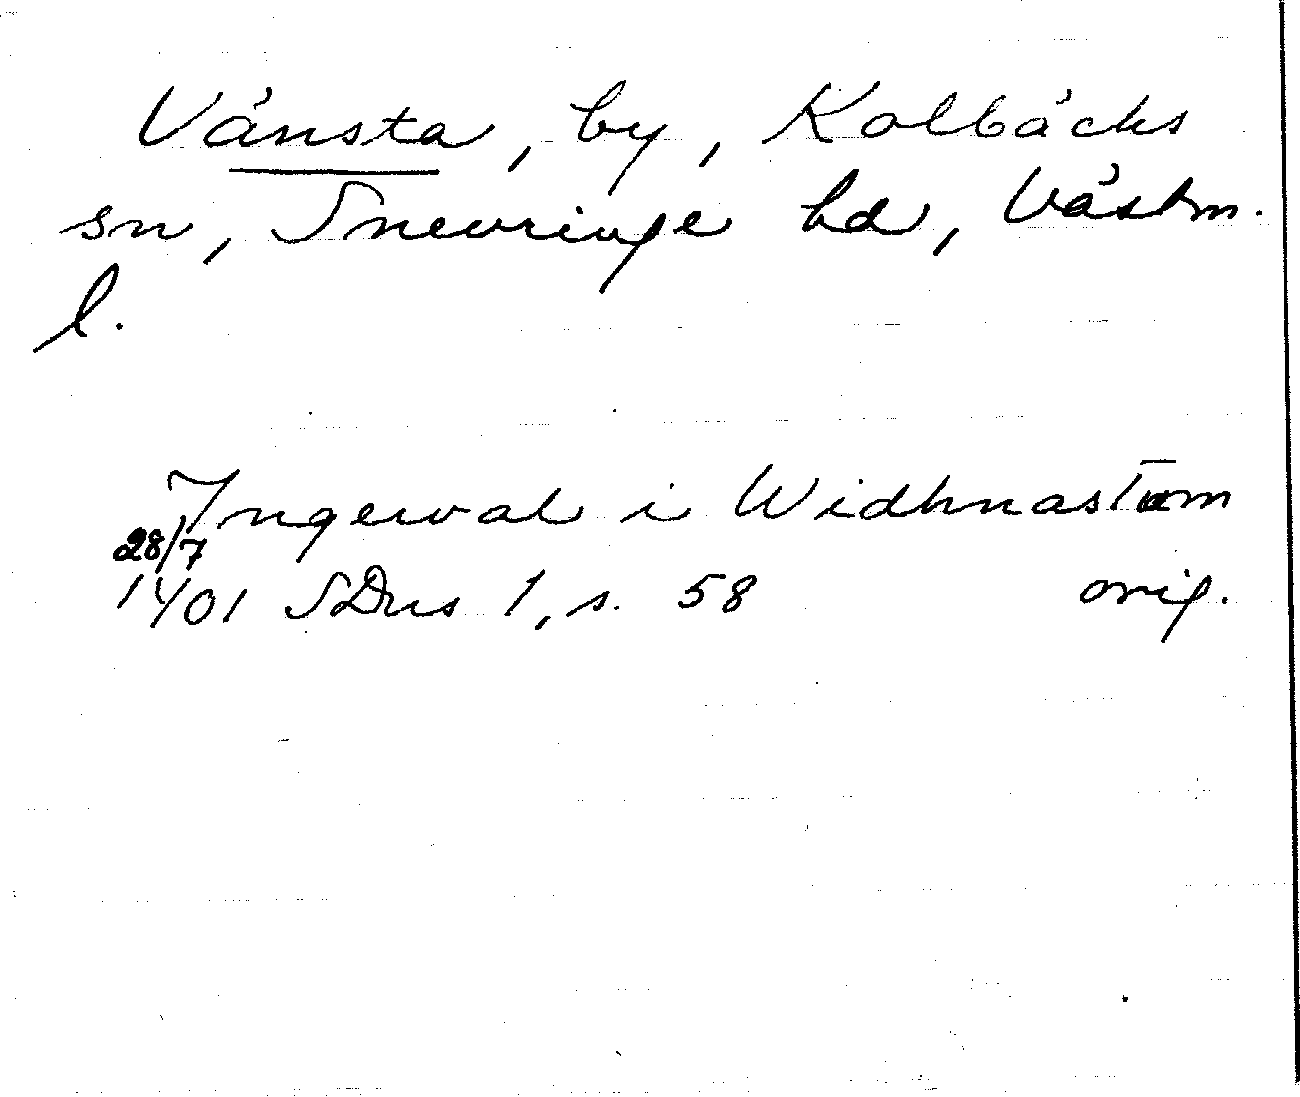 Vänsta, by, Kolbäcks
sn, Snevringe hd, Västm.
l.
Ingewal i Widhnastum
28/7
1401 SDns 1, s. 58 orig.